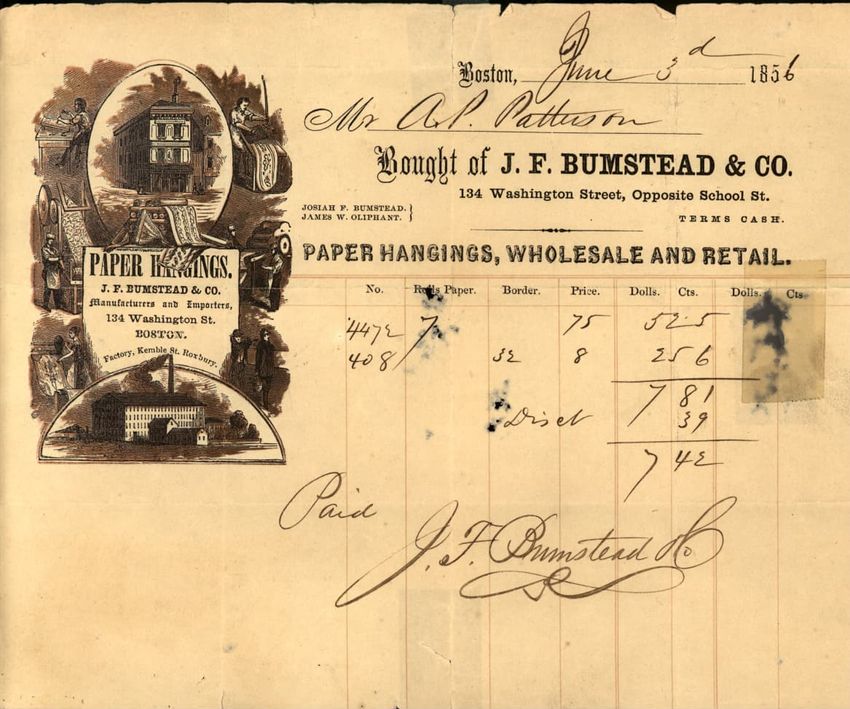 Boston, June 3d 1856
Mr A. P. Patterson
Bought of J. F. BUMSTEAD & CO.
134 Washington Street, Opposite School St.
JOSIAH F. BUMSTEAD.
JAMES W. OLIPHANT.
TERMS CASH.
PAPER HANGINGS, WHOLESALE AND RETAIL.
PAPER HANGINGS.
J. F. BUMSTEAD & CO.
Manufacturers and Importers,
134 Washington St.
BOSTON.
Factory, Kemble St. Roxbury.
No. Rolls Paper. Border. Price. Dolls. Cts. Dolls. Cts
4472 7 75 5 25
408 32 8 2 56
7 81
Disct 39
7 42
Paid
J. F. Bumstead & Co